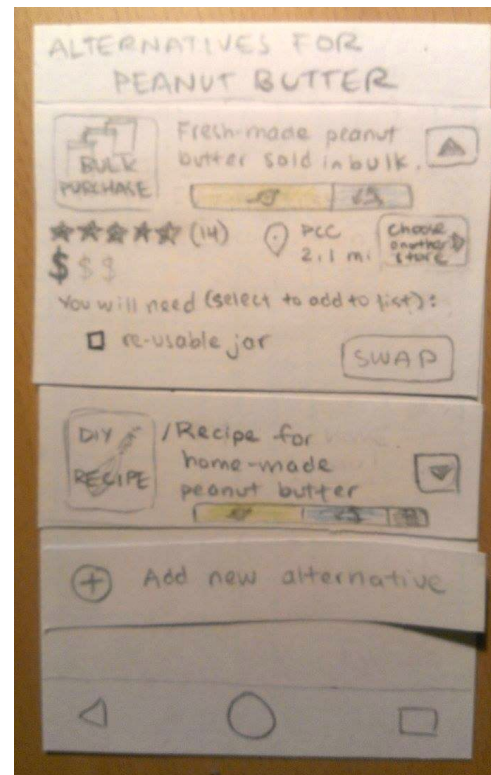 ALTERNATIVES FOR
PEANUT BUTTER
BULK
PURCHASE
Fresh-made peanut
butter sold in bulk.
(14)
PCC
2.1 mi
Choose
another
store
$$$
You will need (select to add to list):
re-usable jar
SWAP
DIY
RECIPE
/Recipe for
home-made
peanut butter
Add new alternative